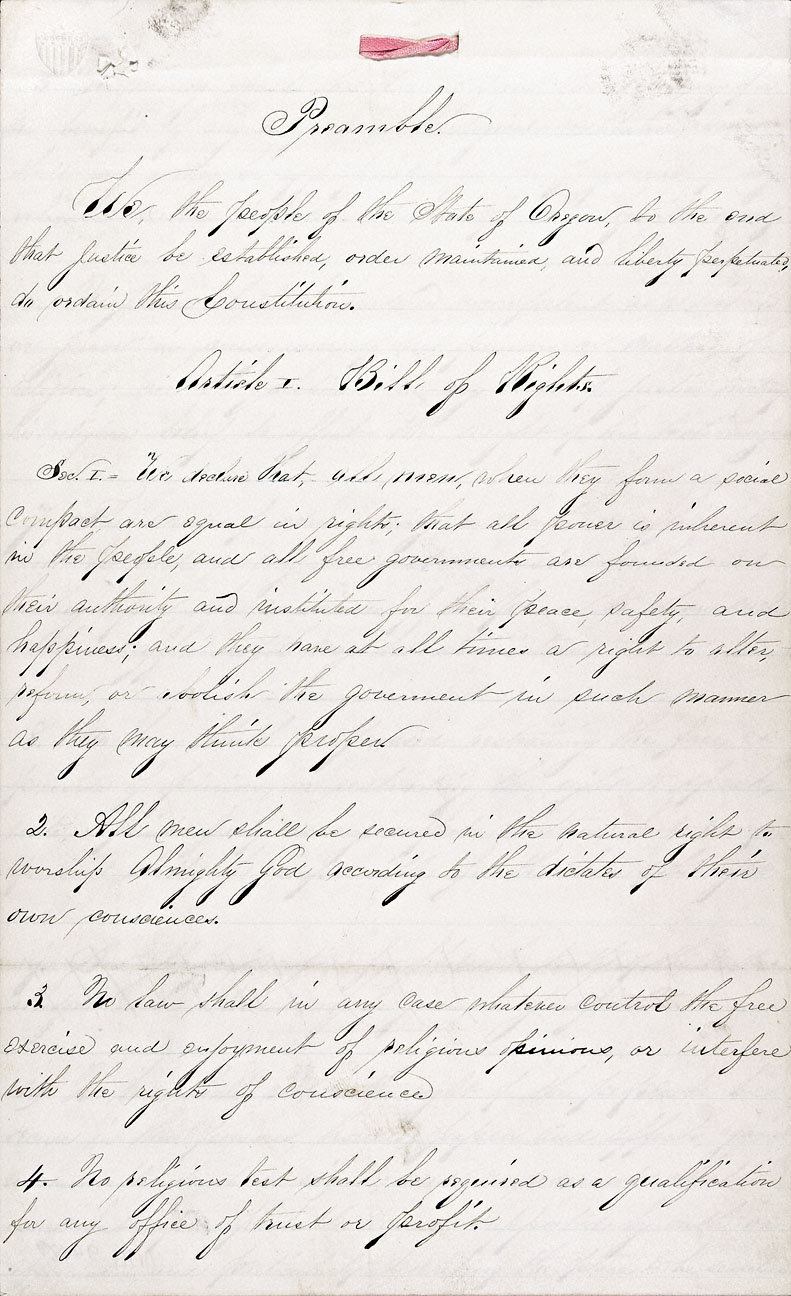 Preamble.
We, the people of the State of Oregon, to the end
that Justice be established, order maintained, and liberty perpetuated,
do ordain this Constitution.
Article I. Bill of Rights.
Sec. I. - We declare that, all men, when they form a social
compact are equal in rights; that all power is inherent
in the people, and all free governments are founded on
their authority and instituted for their peace, safety, and
happiness; and they have at all times a right to alter,
reform, or abolish the goverment in such manner
as they may think proper
2. All men shall be secured in the natural right to
worship Almighty God according to the dictates of their
own consciences.
3. No law shall in any case whatever control the free
exercise and enjoyment of religious opinions, or interfere
with the rights of conscience
4. No religious test shall be required as a qualification
for any office of trust or profit.